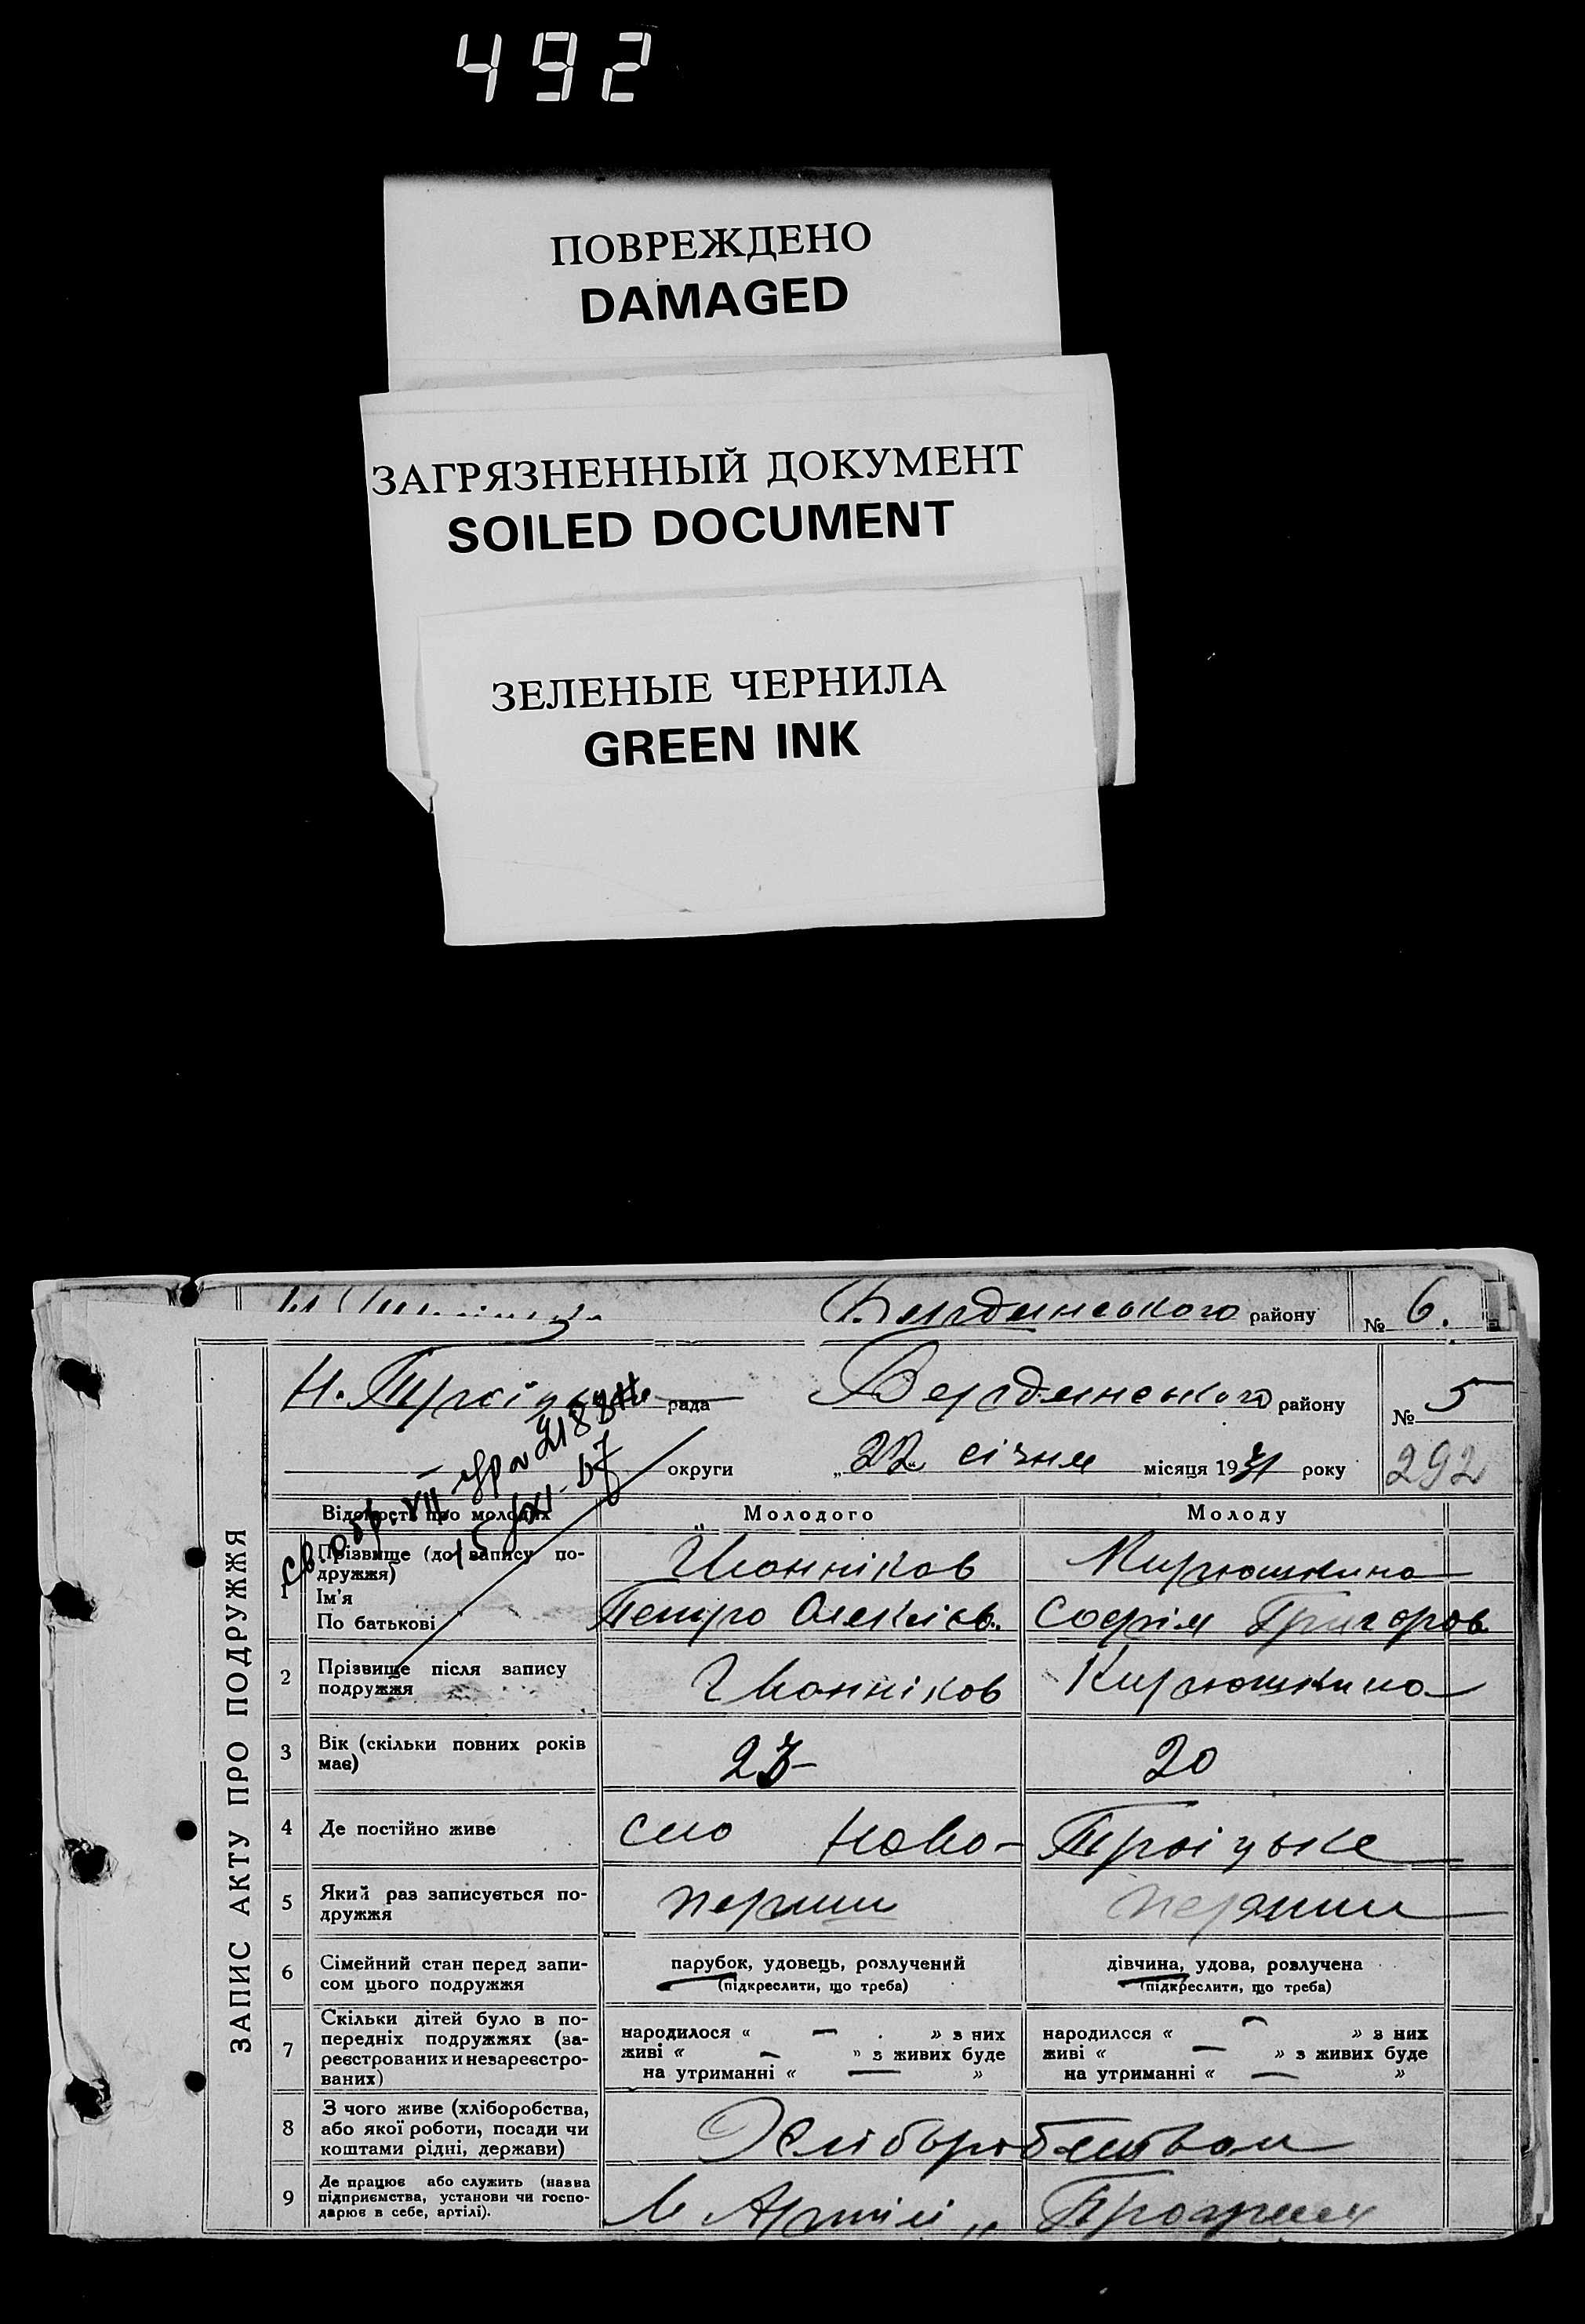 492
ПОВРЕЖДЕНО
DAMAGED
ЗАГРЯЗНЕННЫЙ ДОКУМЕНТ
SOILED DOCUMENT
ЗЕЛЕНЫЕ ЧЕРНИЛА
GREEN INK
Бердянського району № 6.
ЗАПИС АКТУ ПРО ПОДРУЖЖЯ
Н. Троіцьке рада Бердянського району № 5
округи „22" січня місяця 1931 року 292
Відомості про молодих Молодого Молоду
1 Прізвище (до запису по-
дружжя)
Ім'я
По батькові
Іванніков Кирюшкина
Петро Олексієв. Софія Григоров.
2 Прізвище після запису
подружжя
Іванніков Кирюшкина
3 Вік (скільки повних років
має)
23 20
4 Де постійно живе село Ново-Троіцьке
5 Який раз записується по-
дружжя
перший перший
6 Сімейний стан перед запи-
сом цього подружжя
парубок, удовець, розлучений
(підкреслити, що треба)
дівчина, удова, розлучена
(підкреслити, що треба)
7 Скільки дітей було в по-
передніх подружжях (за-
реєстрованих и незареєстро-
ваних)
народилося « — » з них
живі « — » з живих буде
на утриманні « — »
народилося « — » з них
живі « — » з живих буде
на утриманні « — »
8 З чого живе (хліборобства,
або якої роботи, посади чи
коштами рідні, держави)
Хліборобством
9 Де працює або служить (назва
підприємства, установи чи госпо-
дарює в себе, артілі).
в Артілі „